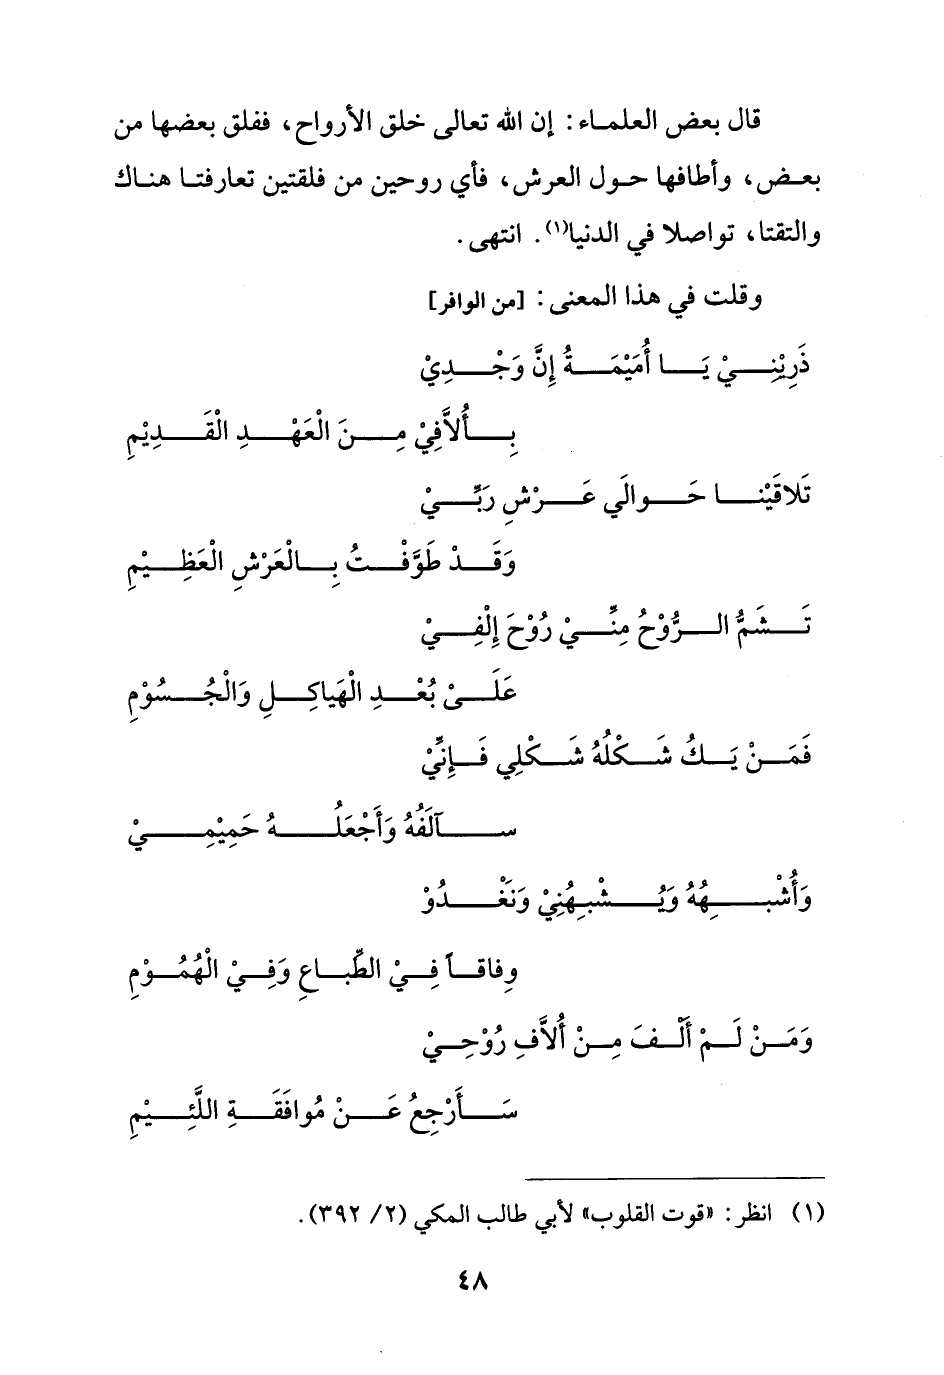 قال بعض العلماء: إن الله تعالى خلق الأرواح، ففلق بعضها من
بعض، وأطافها حول العرش، فأي روحين من فلقتين تعارفتا هناك
والتقتا، تواصلا في الدنيا(١). انتهى.
وقلت في هذا المعنى: [من الوافر]
ذَرِيْنِيْ يَا أُمَيْمَةُ إِنَّ وَجْدِيْ
بِأُلاَّفِيْ مِنَ الْعَهْدِ الْقَدِيْمِ
تَلاقَيْنا حَوالَي عَرْشِ رَبِّيْ
وَقَدْ طَوَّفْتُ بِالْعَرْشِ الْعَظِيْمِ
تَشَمُّ الرُّوْحُ مِنِّيْ رُوْحَ إِلْفِيْ
عَلَىْ بُعْدِ الْهَياكِلِ وَالْجُسُوْمِ
فَمَنْ يَكُ شَكْلُهُ شَكْلِي فَإِنِّيْ
سآلَفُهُ وَأَجْعَلُهُ حَمِيْمِيْ
وَأُشْبِهُهُ وَيُشْبِهُنِيْ وَنَغْدُوْ
وِفاقاً فِيْ الطِّباعِ وَفِيْ الْهُمُوْمِ
وَمَنْ لَمْ أَلْفَ مِنْ أُلاَّفِ رُوْحِيْ
سَأَرْجِعُ عَنْ مُوافَقَةِ اللَّئِيْمِ
(١) انظر: «قوت القلوب» لأبي طالب المكي (٢/ ٣٩٢).
٤٨